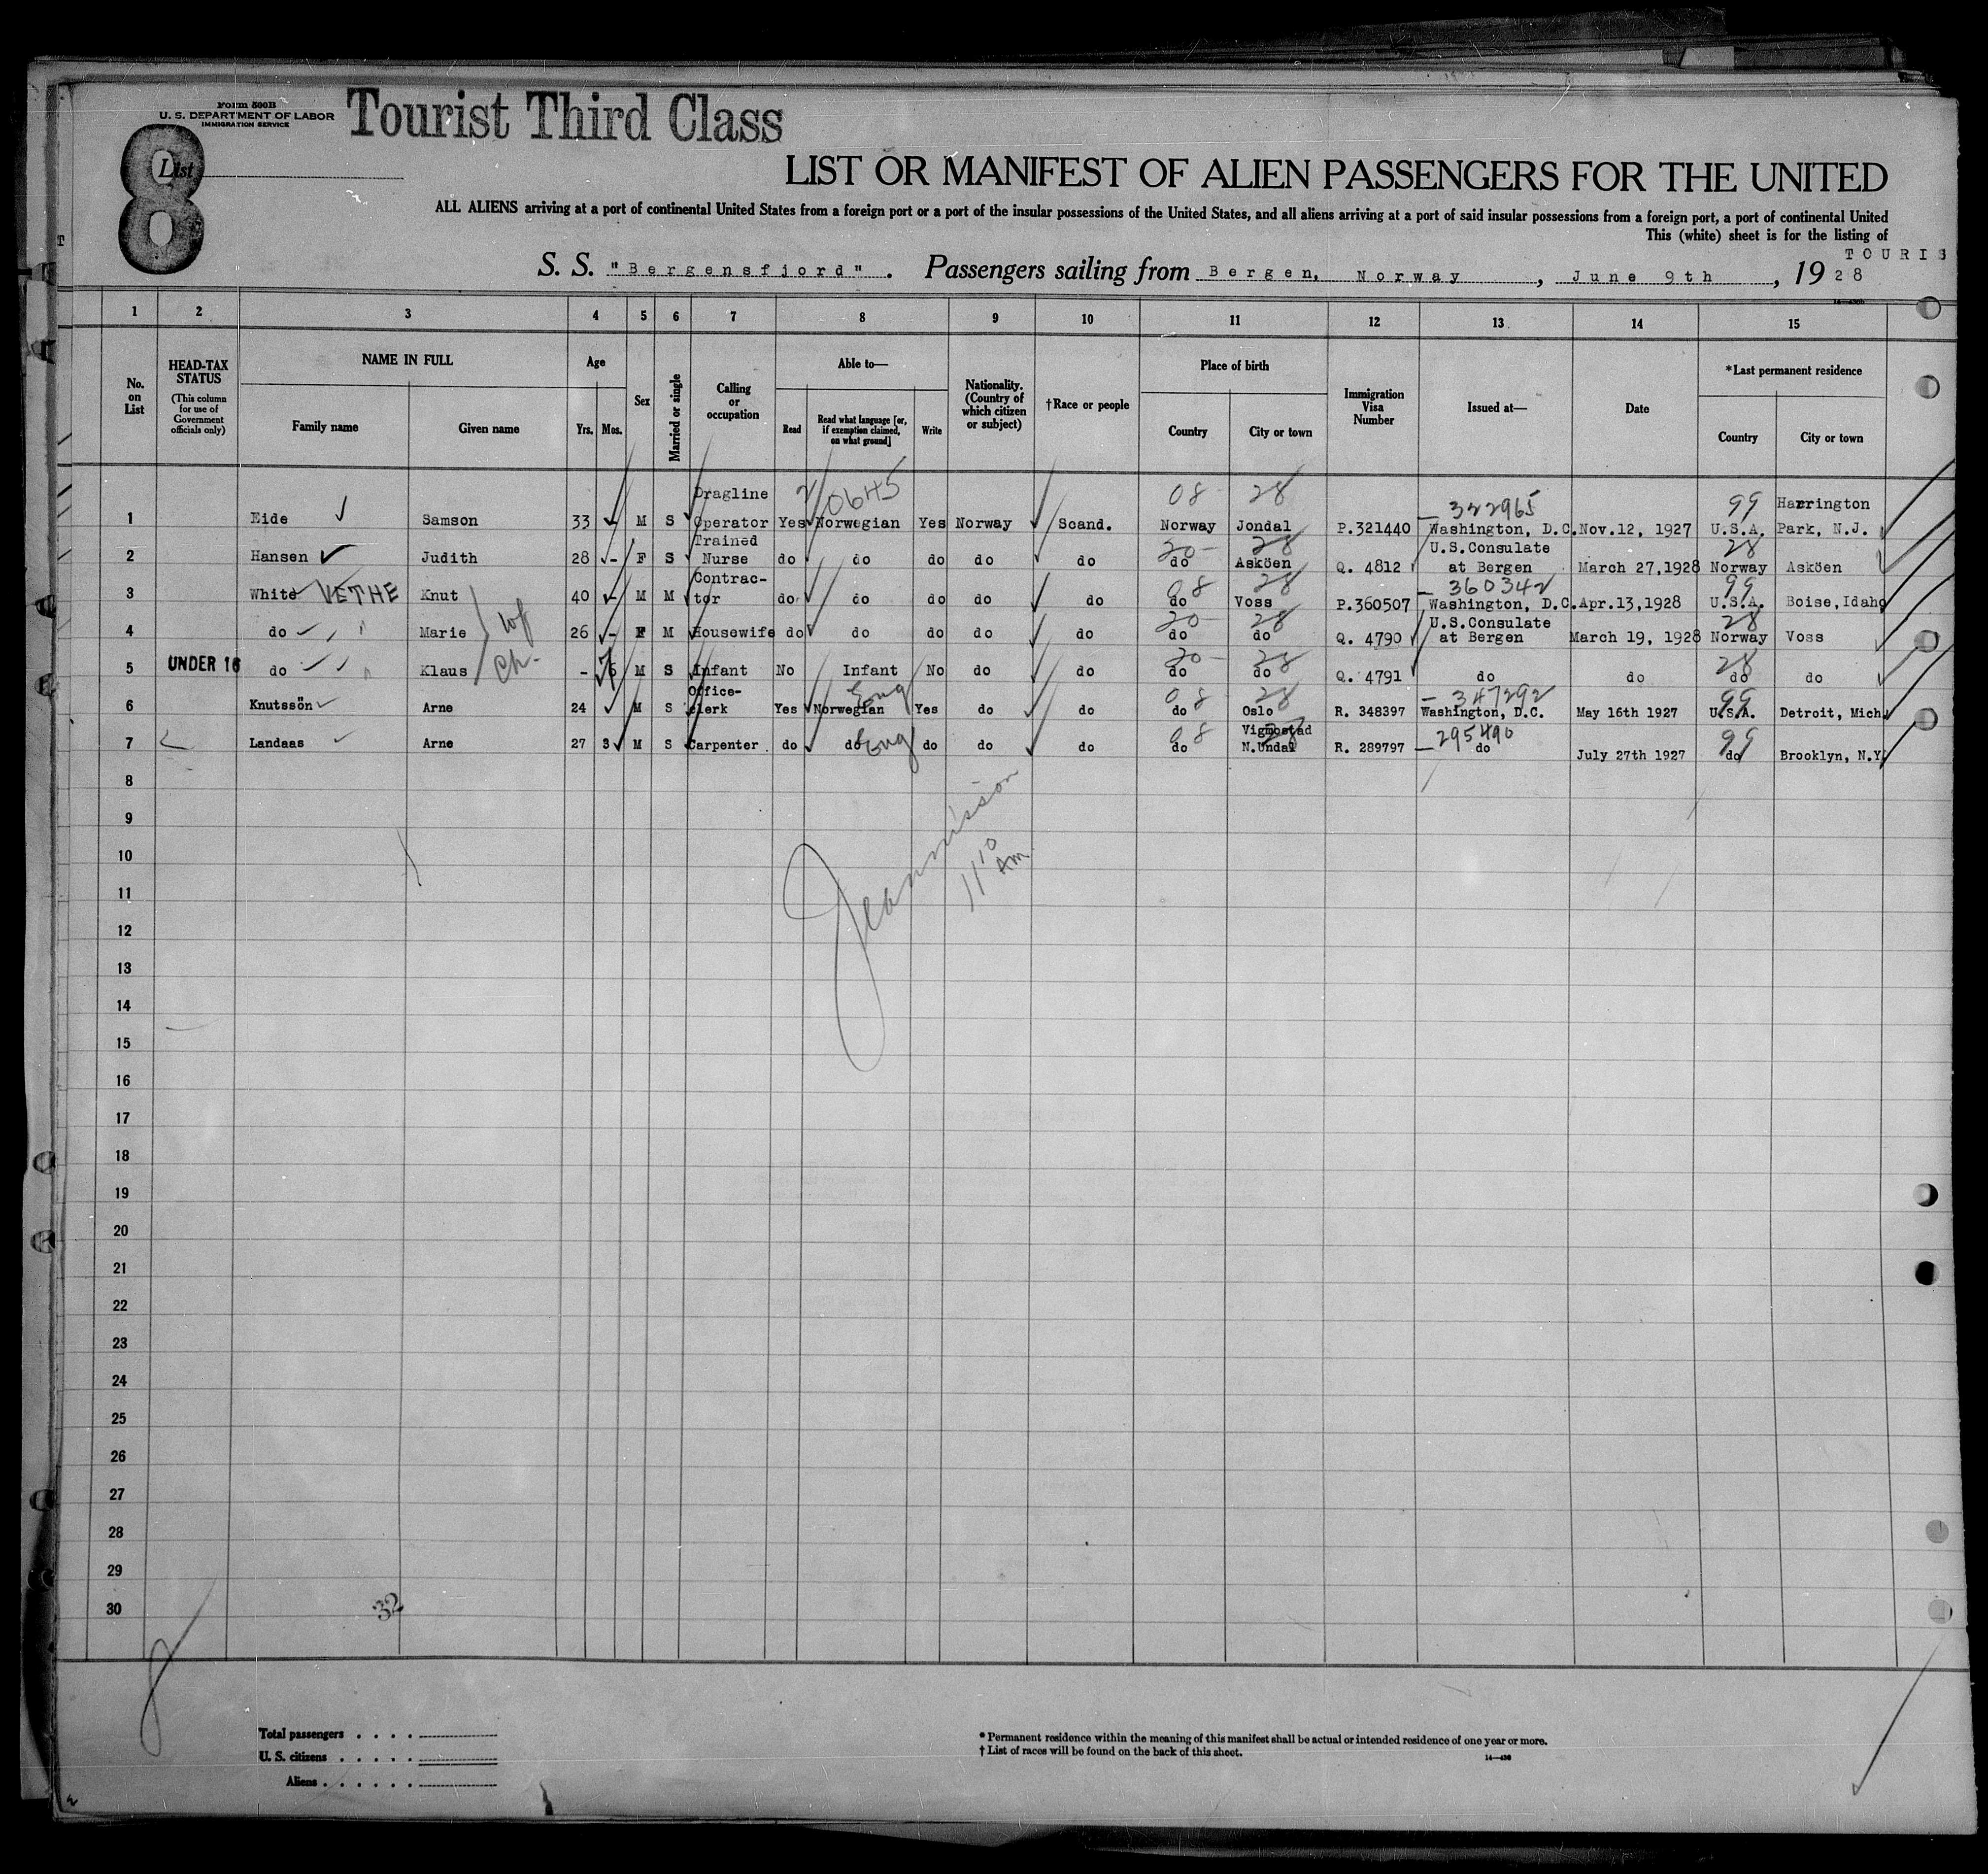 Form 500B
U. S. DEPARTMENT OF LABOR
IMMIGRATION SERVICE
Tourist Third Class
8
List
LIST OR MANIFEST OF ALIEN PASSENGERS FOR THE UNITED
ALL ALIENS arriving at a port of continental United States from a foreign port or a port of the insular possessions of the United States, and all aliens arriving at a port of said insular possessions from a foreign port, a port of continental United
This (white) sheet is for the listing of
TOURIS
S. S. "Bergensfjord". Passengers sailing from Bergen, Norway, June 9th, 1928
1 2 3 4 5 6 7 8 9 10 11 12 13 14 15
No. on List
HEAD-TAX STATUS
(This column for use of Government officials only)
NAME IN FULL
Family name Given name
Age
Yrs. Mos.
Sex
Married or single
Calling or occupation
Able to—
Read Read what language [or, if exemption claimed, on what ground] Write
Nationality. (Country of which citizen or subject)
†Race or people
Place of birth
Country City or town
Immigration Visa Number
Issued at—
Date
*Last permanent residence
Country City or town
0645 08 28 322965 99
1 Eide Samson 33 - M S Dragline Operator Yes Norwegian Yes Norway Scand. Norway Jondal P.321440 Washington, D.C. Nov.12, 1927 U.S.A. Harrington Park, N.J.
20- 28 28
2 Hansen Judith 28 - F S Trained Nurse do do do do do do Asköen Q. 4812 U.S.Consulate at Bergen March 27,1928 Norway Asköen
08 28 360342 99
3 White VETHE Knut 40 - M M Contrac-tor do do do do do do Voss P.360507 Washington, D.C. Apr.13,1928 U.S.A. Boise, Idaho
20- 28 28
4 do Marie wf 26 - F M Housewife do do do do do do do Q. 4790 U.S.Consulate at Bergen March 19, 1928 Norway Voss
20- 28 28
5 UNDER 16 do Klaus ch- - M S Infant No Infant No do do do do Q. 4791 do do do do
Eng 08 28 347292 99
6 Knutssön Arne 24 M S Office-clerk Yes Norwegian Yes do do do Oslo R. 348397 Washington, D.C. May 16th 1927 U.S.A. Detroit, Mich.
Eng 08 28 295490 99
7 Landaas Arne 27 3 M S Carpenter do do do do do do Vigmostad N.Undal R. 289797 do July 27th 1927 do Brooklyn, N.Y.
8
9
10
11
12
13
14
15
16
17
18
19
20
21
22
23
24
25
26
27
28
29
30
11 10 AM
32
8
Total passengers . . . .
U. S. citizens . . . . .
Aliens . . . . . .
* Permanent residence within the meaning of this manifest shall be actual or intended residence of one year or more.
† List of races will be found on the back of this sheet.